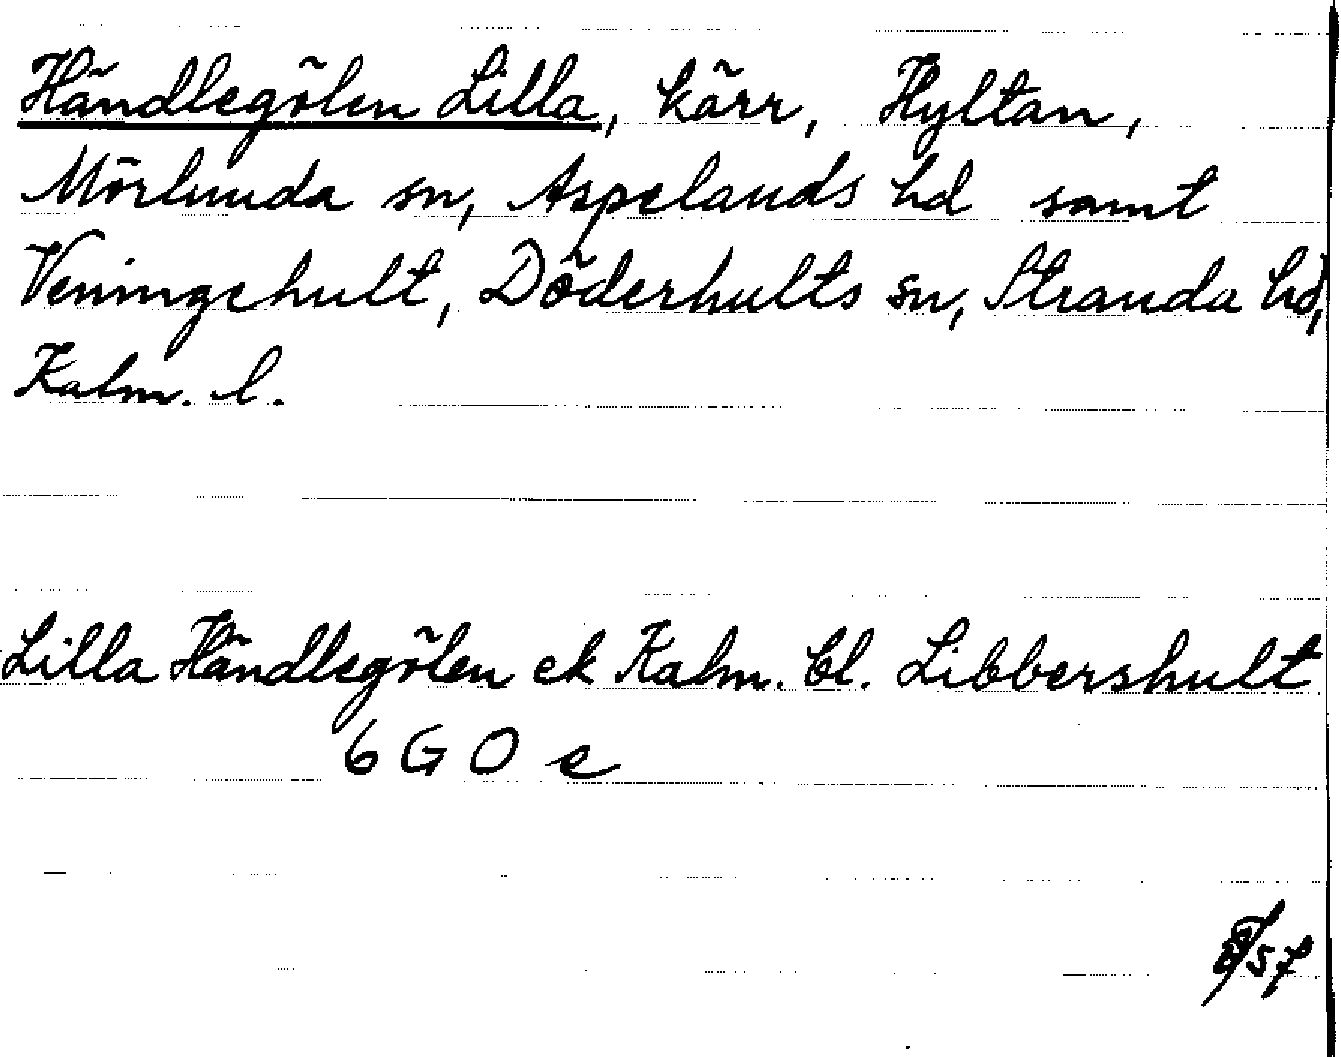 Händlegölen Lilla, kärr, Hyltan,
Mörlunda sn, Aspelands hd samt
Veningehult, Döderhults sn, Stranda hd,
Kalm. l.
Lilla Händlegölen ek Kalm. bl. Libbershult
6 G O e
/57